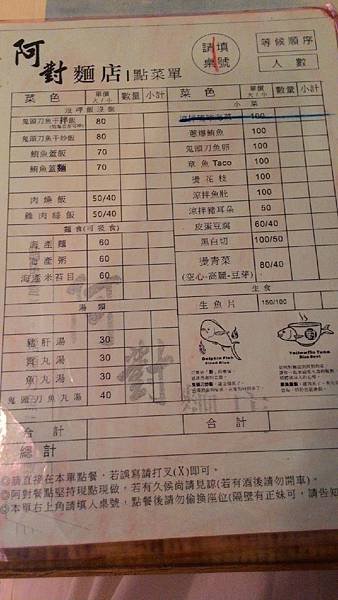 阿對麵店 | 點菜單
請填
桌號
等候順序
人數
菜色 單價 大/小 數量 小計
鬼頭刀魚干拌飯 80
鬼頭刀魚干炒飯 80
鮪魚蓋飯 70
鮪魚蓋麵 70
肉燥飯 50/40
雞肉絲飯 50/40
海產麵 60
海產粥 60
海產米苔目 60
湯類
豬肝湯 30
貢丸湯 30
魚丸湯 30
鬼頭刀魚丸湯 40
合計
總計
菜色 單價 大/小 數量 小計
小菜
100
蔥爆鮪魚 100
鬼頭刀魚卵 100
章魚 Taco 100
燙花枝 100
涼拌魚肚 100
涼拌豬耳朵 50
皮蛋豆腐 60/40
黑白切 100/50
燙青菜 80/40
(空心-高麗-豆芽)
生食
生魚片 150/100
Dolphin Fish
Yellowfin Tuna
合計
◎請直接在本單點餐，若誤寫請打叉(X)即可。
◎阿對餐點堅持現點現做，若有久候尚請見諒(若有酒後請勿開車)。
◎本單右上角請填入桌號，點餐後請勿偷換座位(隔壁有正妹可，請告知